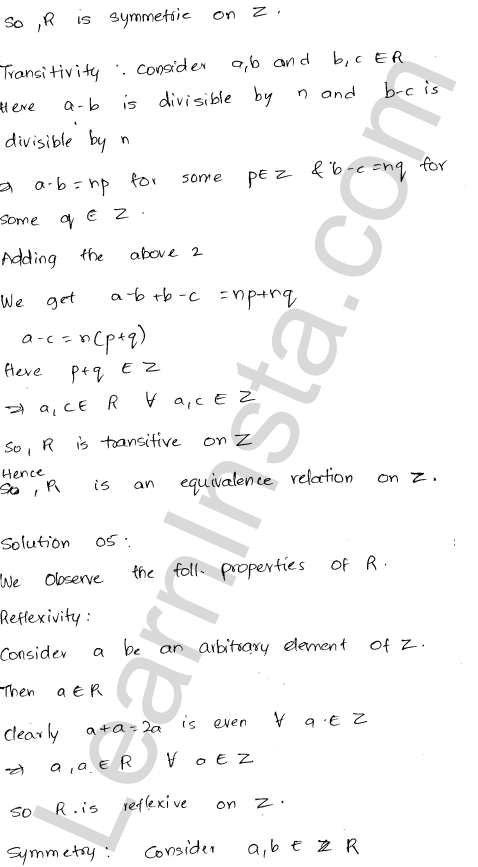 So , R is symmetric on Z .
Transitivity : consider a,b and b,c ∈ R
Here a-b is divisible by n and b-c is
divisible by n
⇒ a-b = np for some p∈Z & b-c = nq for
some q ∈ Z .
Adding the above 2
We get a-b+b-c = np+nq
a-c = n(p+q)
Here p+q ∈ Z
⇒ a,c∈ R ∀ a,c ∈ Z
So, R is transitive on Z
Hence
So , R is an equivalence relation on Z .
Solution 05 :
We observe the foll. properties of R .
Reflexivity :
Consider a be an arbitrary element of Z .
Then a∈R
Clearly a+a=2a is even ∀ a ∈ Z
⇒ a,a ∈ R ∀ a ∈ Z
So R is reflexive on Z .
Symmetry : Consider a,b ∈ Z R
LearnInsta.com